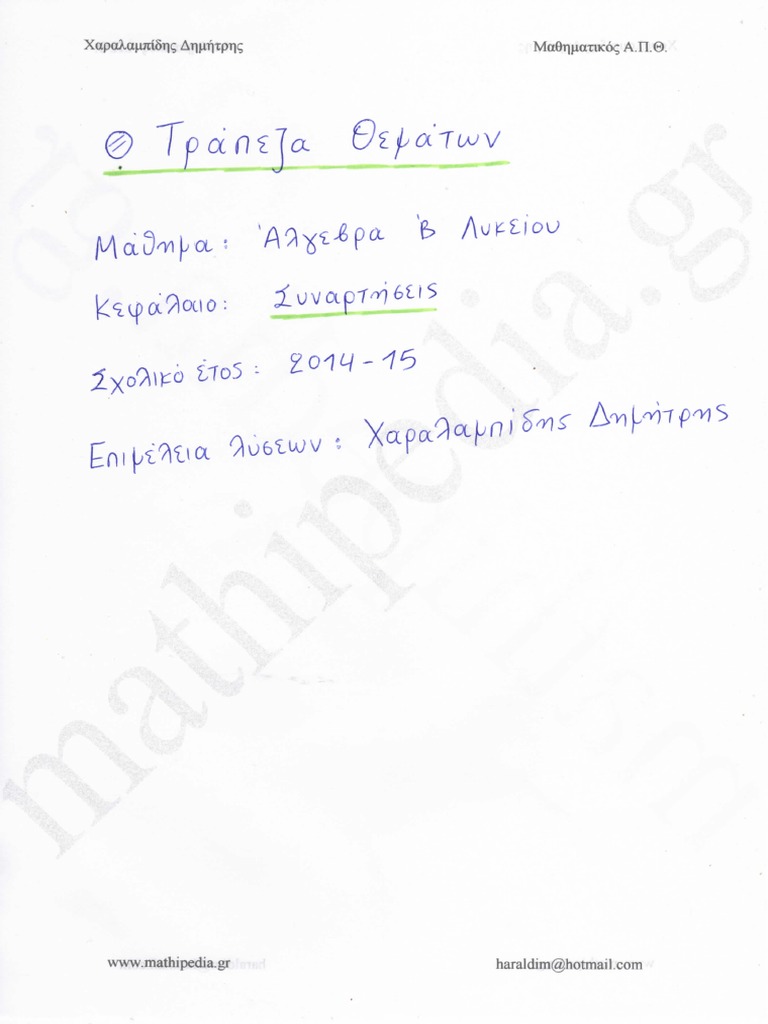 Χαραλαμπίδης Δημήτρης Μαθηματικός Α.Π.Θ.
Τράπεζα Θεμάτων
Μάθημα: Άλγεβρα Β Λυκείου
Κεφάλαιο: Συναρτήσεις
Σχολικό έτος: 2014-15
Επιμέλεια λύσεων: Χαραλαμπίδης Δημήτρης
mathipedia.gr
www.mathipedia.gr haraldim@hotmail.com